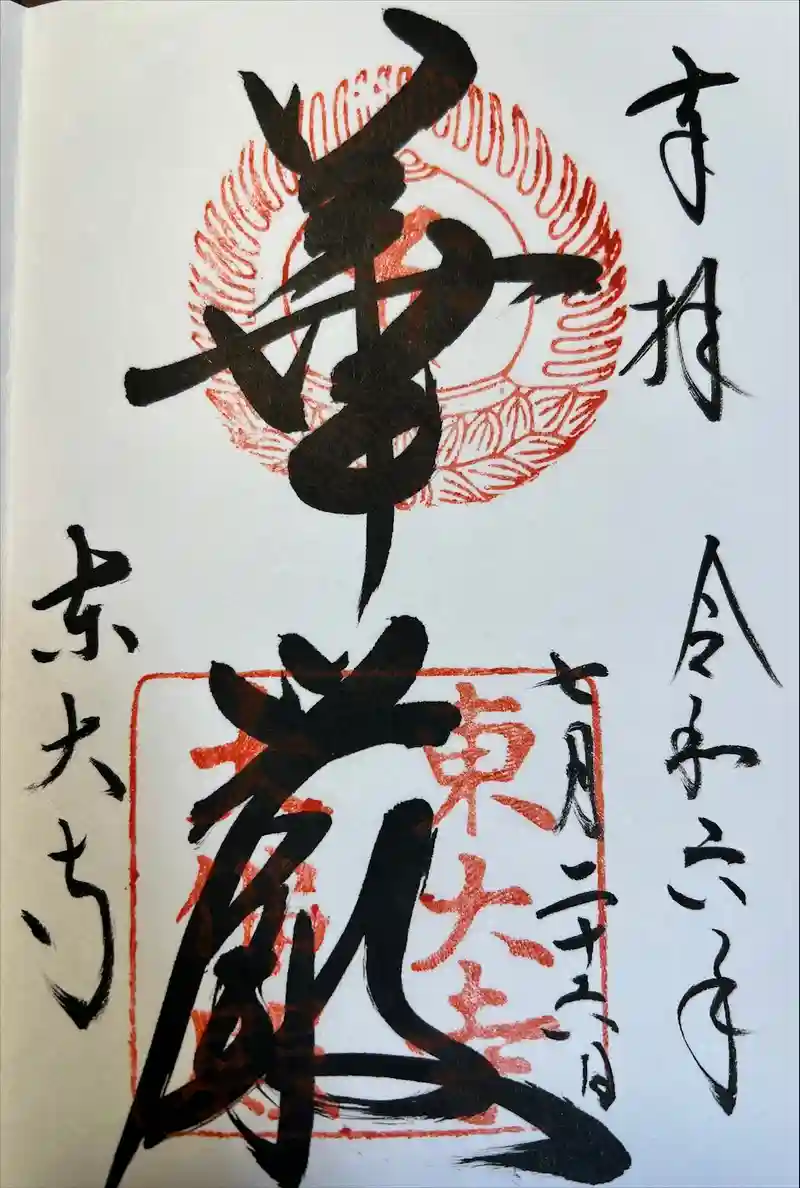 奉拝
令和六年
七月二十六日
華厳
東大寺
大仏殿
東大寺